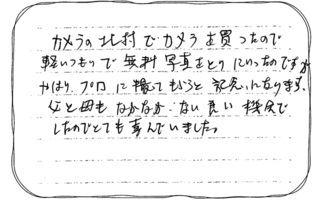 カメラの北村でカメラを買ったので
軽いつもりで無料写真をとりにいったのですが
やはりプロに撮てもらうと記念になります、
父と母もなかなかない良い機会で
したのでとても喜んでいました。